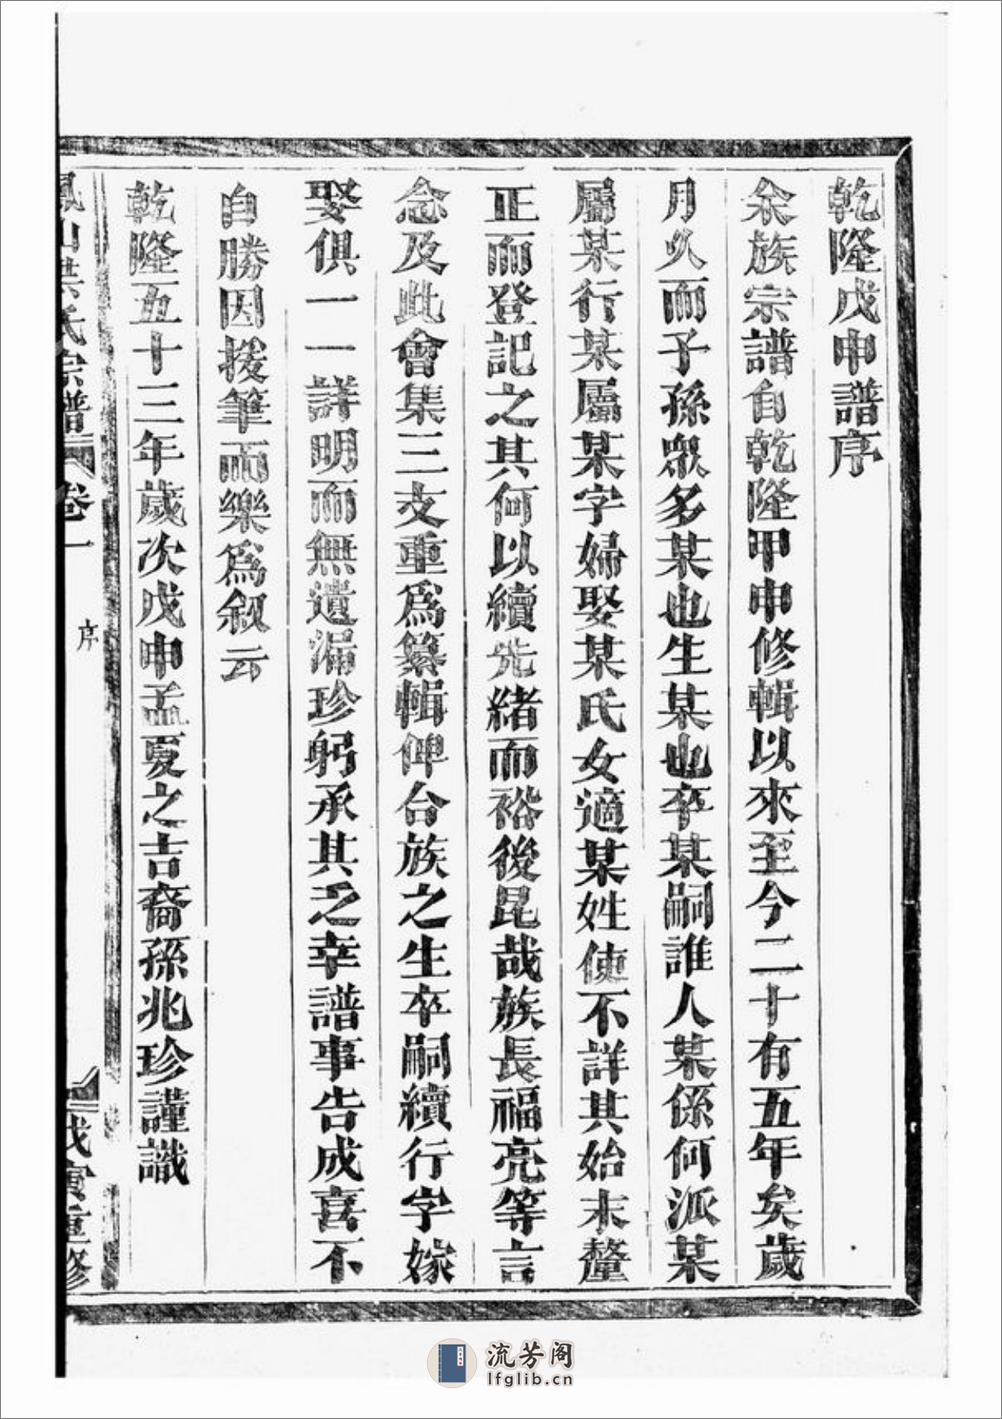 乾隆戊申譜序
余族宗譜自乾隆甲申修輯以來至今二十有五年矣歲
月久而子孫眾多某也生某也卒某嗣誰人某係何派某
屬某行某屬某字婦娶某氏女適某姓使不詳其始末釐
正而登記之其何以續先緒而裕後昆哉族長福亮等言
念及此會集三支重為纂輯俾台族之生卒嗣續行字嫁
娶俱一一詳明而無遺漏珍躬承其之幸譜事告成喜不
自勝因援筆而樂為叙云
乾隆五十三年歲次戊申孟夏之吉裔孫兆珍謹識
洪氏宗譜 卷一 序 戊寅重修
流芳阁
lfglib.cn